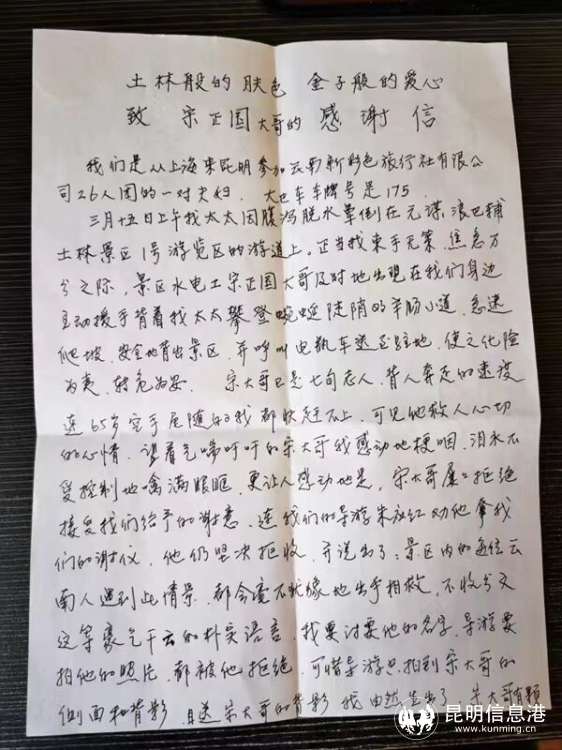 土林般的肤色 金子般的爱心
致 宗正国大哥的感谢信
我们是从上海来昆明参加云南新彩色旅行社有限公
司26人团的一对夫妇. 大巴车车牌号是175.
三月十五日上午我太太因腹泻脱水晕倒在元谋浪巴铺
土林景区1号游览区的游道上。正当我束手无策,焦急万
分之际,景区水电工宗正国大哥及时地出现在我们身边
主动援手背着我太太攀登蜿蜒陡峭的羊肠小道,急速
爬坡,安全地背出景区,并呼叫电瓶车送至驻地,使之化险
为夷,转危为安. 宗大哥已是七旬老人,背人奔走的速度
连65岁空手尾随的我都快赶不上,可见他救人心切
的心情,望着气喘吁吁的宗大哥我感动地梗咽,泪水不
受控制地噙满眼眶,更让人感动地是,宗大哥屡屡拒绝
接受我们给予的谢意,连我们的导游朱 红劝他拿我
们的谢仪,他仍坚决拒收,并说出了:景区内的每位云
南人遇到此情景,都会毫不犹像地出手相救,不收分文
这等豪气干云的朴实语言,我要讨要他的名字,导游要
拍他的照片,都被他拒绝,可惜导游只拍到宗大哥的
侧面和背影,目送宗大哥的背影 我由然
昆明信息港
www.kunming.cn